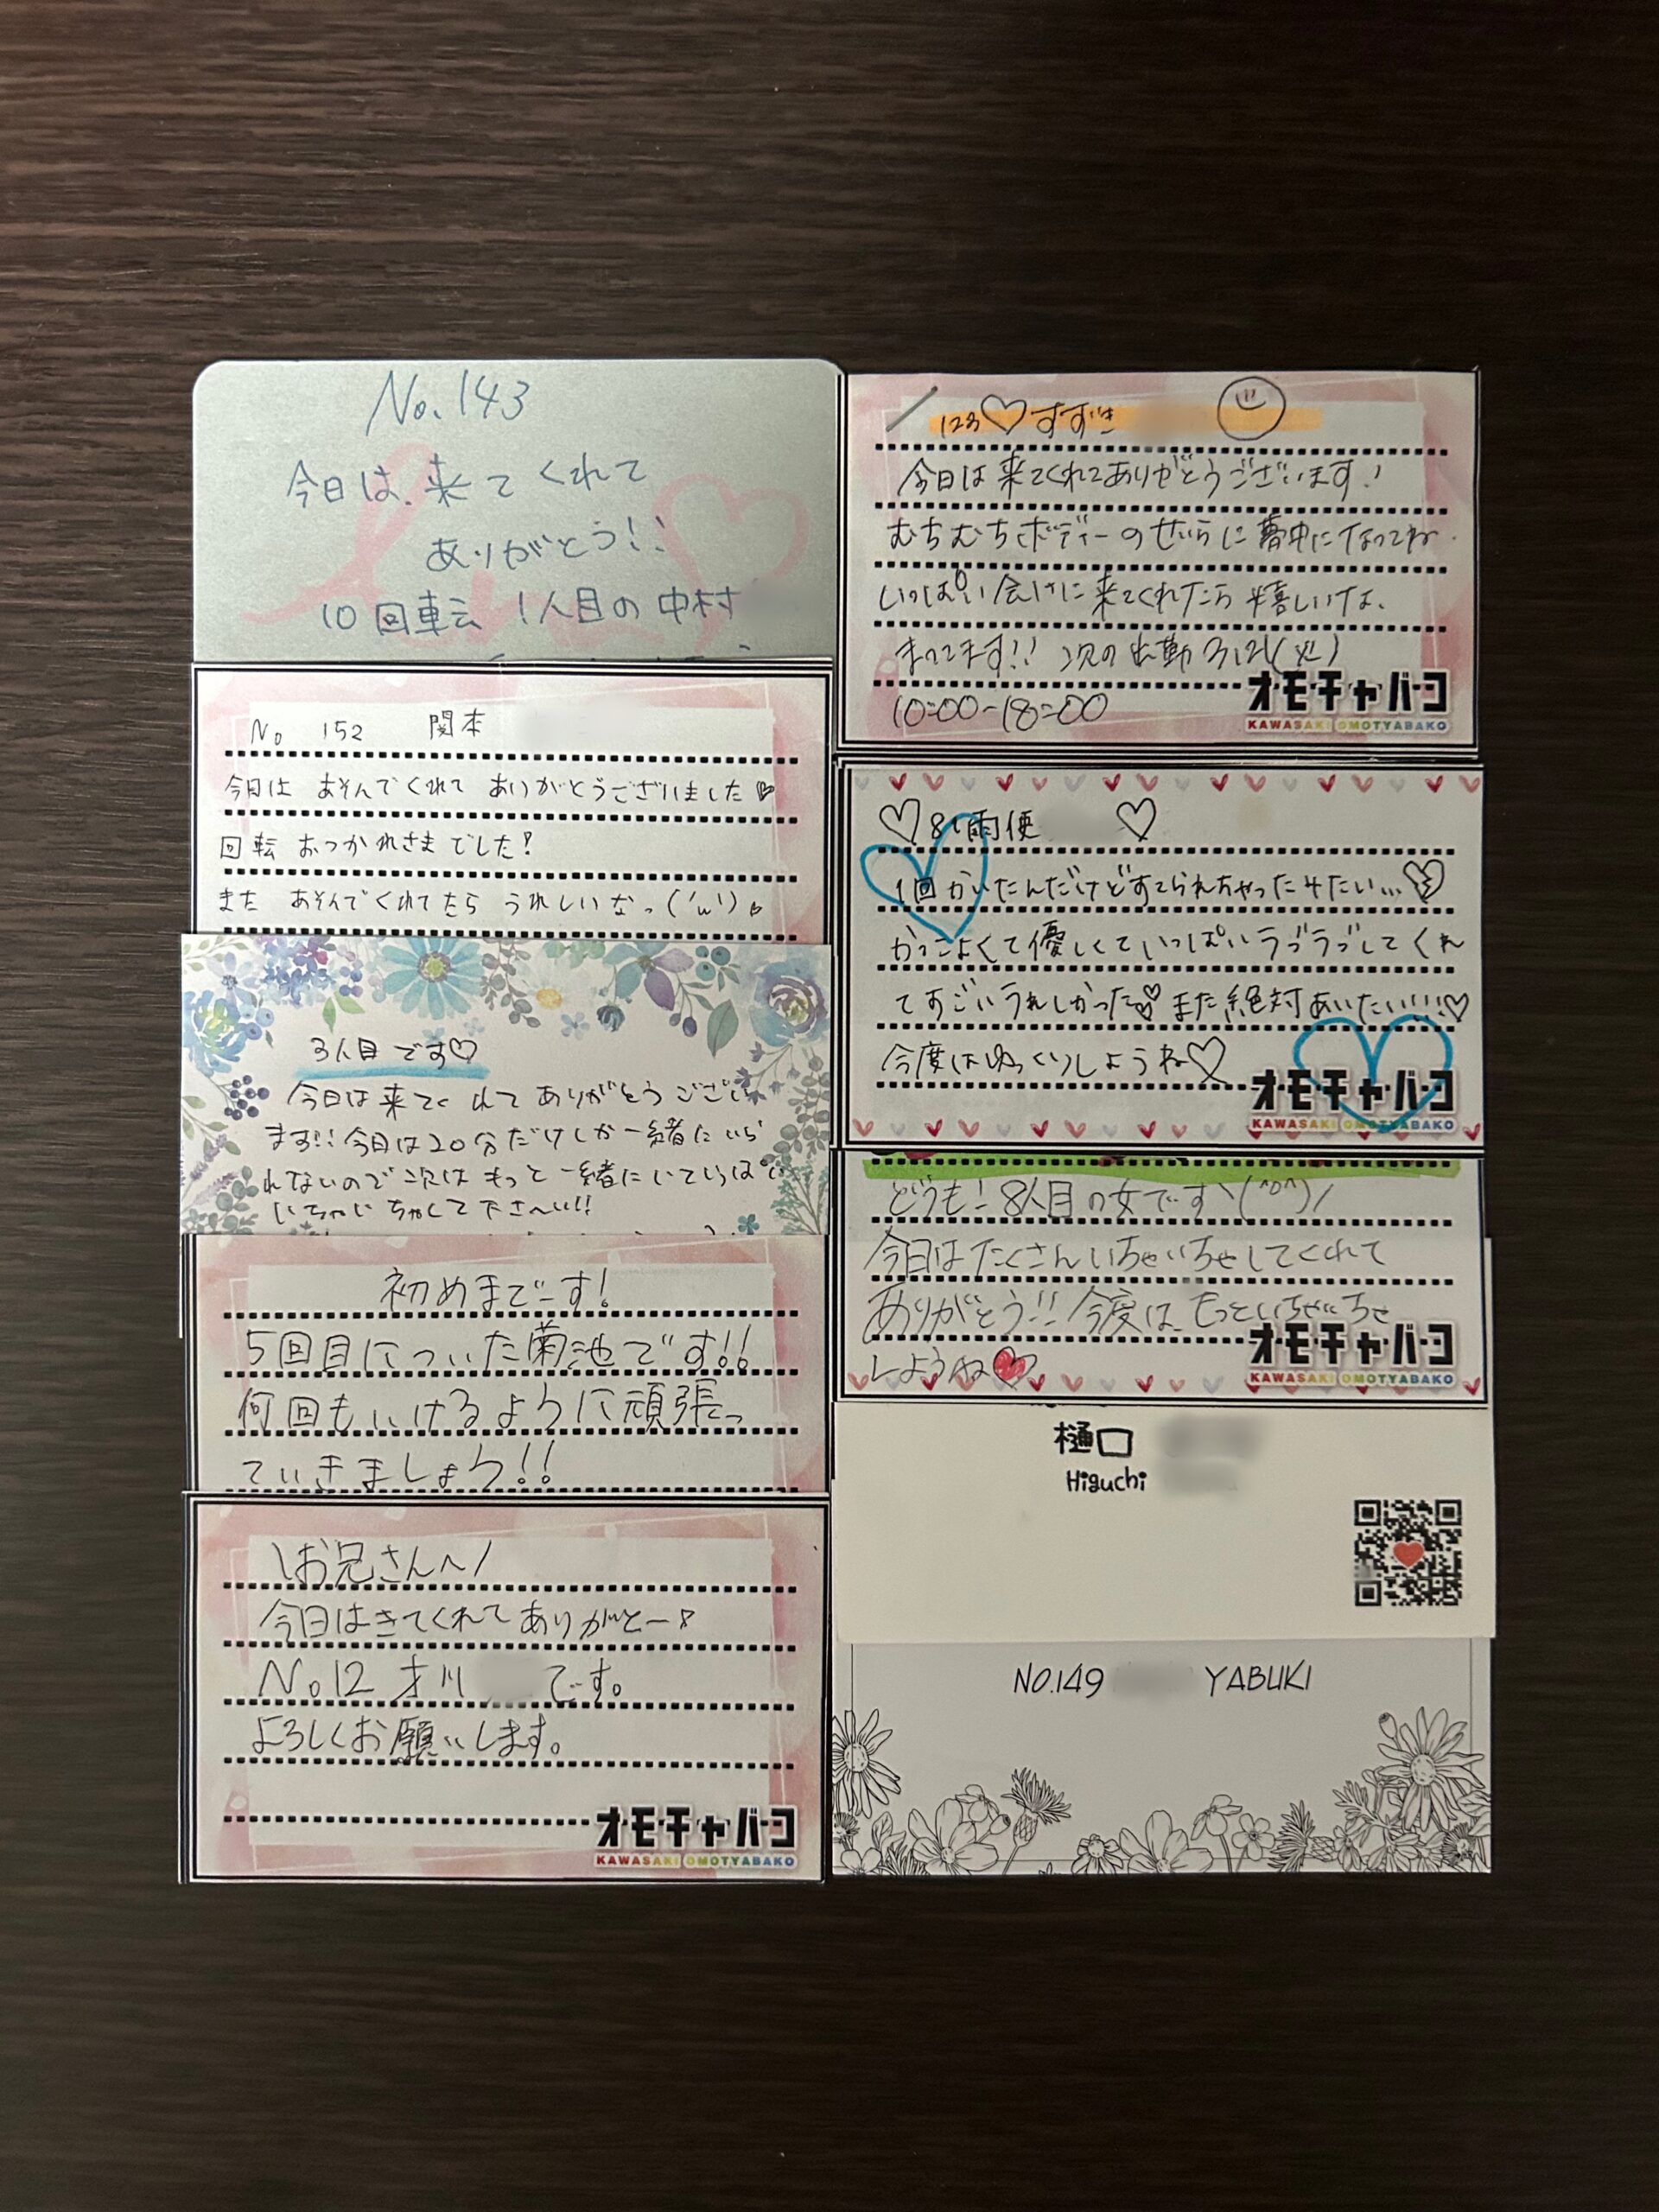 No.143
今日は、来てくれて
ありがとう!!
10回転 1人目の中村
No 152 関本
今日は あそんでくれて ありがとうございました♡
回転 おつかれさまでした!
また あそんでくれてたら うれしいなっ('ω')♡
3人目です♡
今日は来てくれてありがとうござい
ます!!今日は20分だけしか一緒にいら
れないので次はもっと一緒にいていっぱい
いちゃいちゃして下さ〜い!!
初めまでーす!
5回目についた菊池です!!
何回もいけるように頑張っ
ていきましょう!!
\お兄さんへ/
今日はきてくれてありがとー♪
No.12 才川 です。
よろしくお願いします。
オモチャバコ
KAWASAKI OMOTYABAKO
123♡すずき
今日は来てくれてありがとうございます!
むちむちボディーのせいらに夢中になってね
いっぱい会いに来てくれたら嬉しいな、
まってます!! 次の出勤3/21(火)
10:00-18:00
オモチャバコ
KAWASAKI OMOTYABAKO
♡81雨便 ♡
1回かいたんだけどすてられちゃったみたい...💔
かっこよくて優しくていっぱいラブラブしてくれ
てすごいうれしかった♡また絶対あいたい!!!!♡
今度はゆっくりしようね♡
オモチャバコ
KAWASAKI OMOTYABAKO
どうも!8人目の女です\(^o^)/
今日はたくさんいちゃいちゃしてくれて
ありがとう!!今度は、もっといちゃいちゃ
しようね♥
オモチャバコ
KAWASAKI OMOTYABAKO
樋口
Higuchi
NO.149 YABUKI